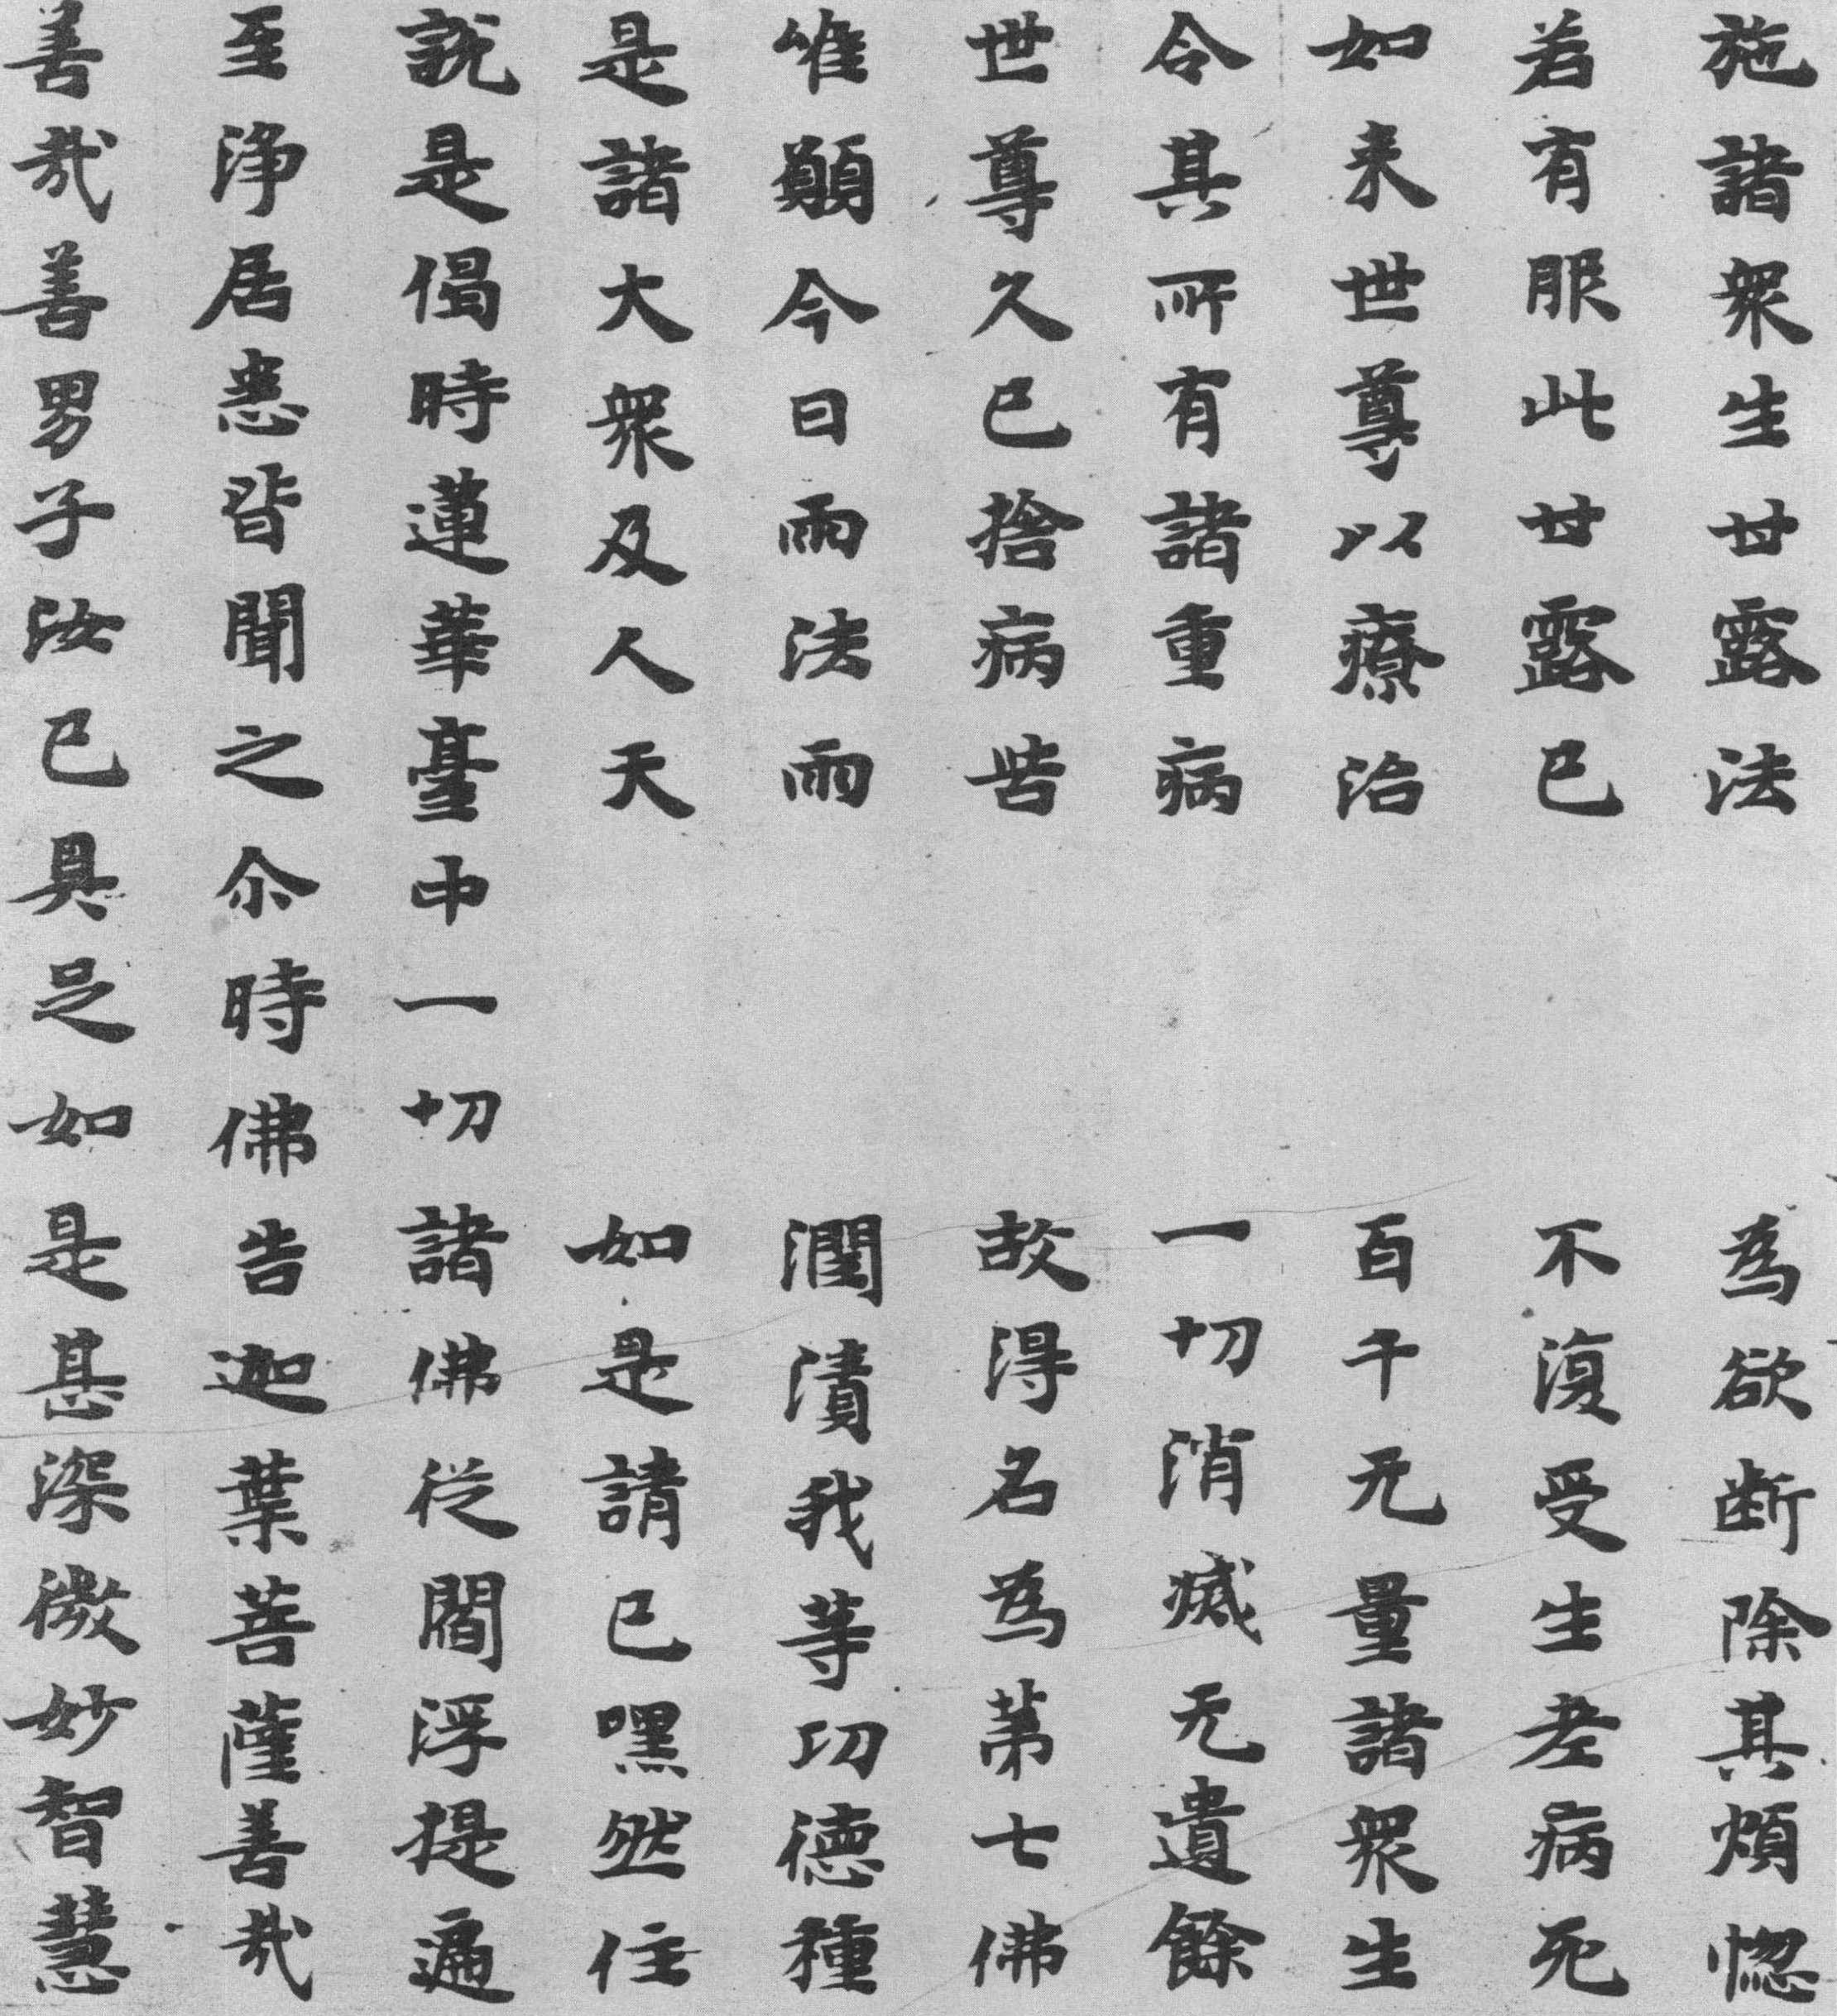 施諸衆生甘露法　為欲断除其煩惚
若有服此甘露已　不復受生老病死
如来世尊以療治　百千无量諸衆生
令其所有諸重病　一切消滅无遺餘
世尊久已捨病苦　故得名為苐七佛
唯願今日雨法雨　潤漬我等功德種
是諸大衆及人天　如是請已嘿然住
說是偈時蓮華臺中一切諸佛從閻浮提遍
至浄居悉皆聞之尒時佛告迦葉菩薩善哉
善哉善男子汝已具足如是甚深微妙智慧